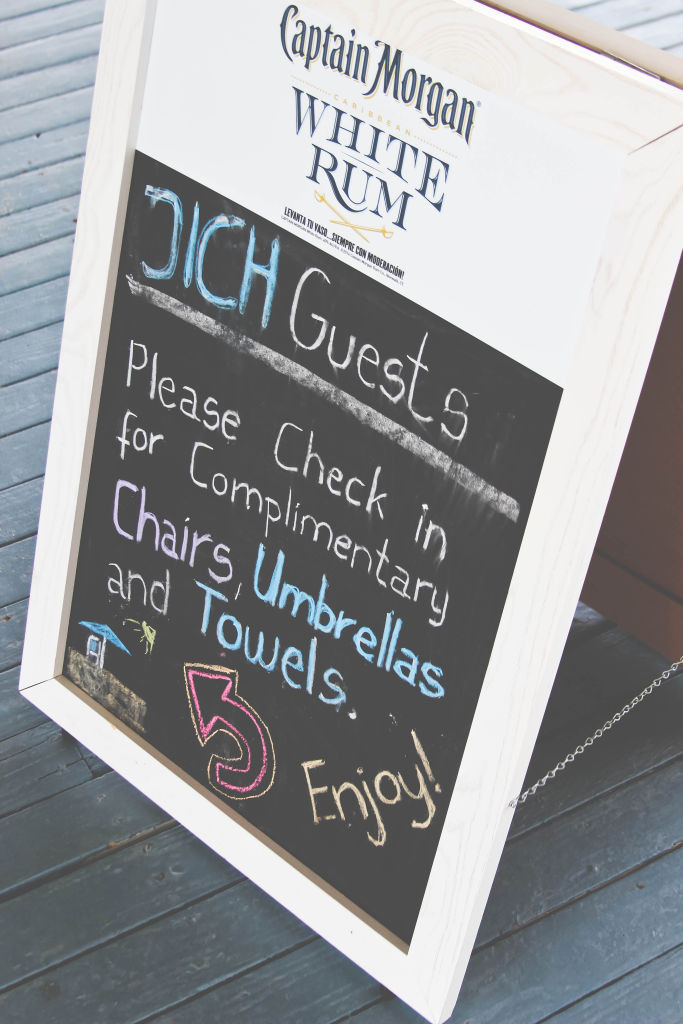 Captain Morgan®
CARIBBEAN
WHITE
RUM
LEVANTA TU VASO...SIEMPRE CON MODERACIÓN!
JICH Guests
Please Check in
for Complimentary
Chairs, Umbrellas
and Towels.
Enjoy!